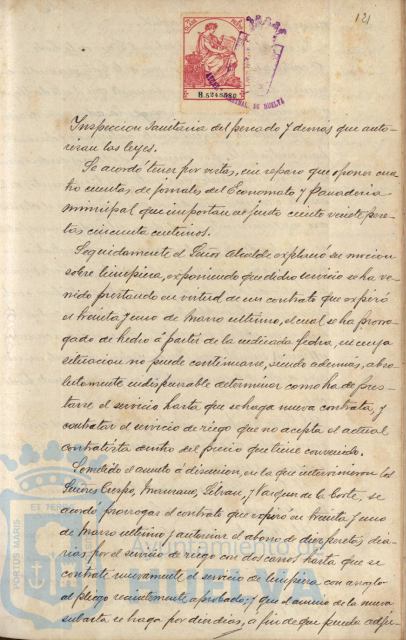 121
B.5248580
Inspeccion Sanitaria del pescado y demas que auto-
rizan las leyes.
Se acordó tener por vistas, sin reparo que oponer cua-
tro cuentas de jornales del Economato y Panaderia
municipal que importan ciento veinte pese-
tas cincuenta centimos.
Seguidamente el Señor Alcalde explanó su mocion
sobre limpieza, exponiendo que dicho servicio se ha ve-
nido prestando en virtud de un contrato que expiró
el treinta y uno de Marzo ultimo, el cual se ha prorro-
gado de hecho á partir de la indicada fecha, en cuya
situacion no puede continuarse, siendo además, abso-
lutamente indispensable determinar como ha de pres-
tarse el servicio hasta que se haga nueva contrata, y
contratar el servicio de riego que no acepta el actual
contratista dentro del precio que tiene convenido.
Sometido el asunto á discusion, en la que intervinieron los
Señores Crespo, Marmano, y Vazquez de la Corte, se
acordó prorrogar el contrato que expiró en treinta y uno
de Marzo ultimo y autorizar el abono de diez pesetas dia-
rias por el servicio de riego con dos carros hasta que se
contrate nuevamente el servicio de limpieza con arreglo
al pliego recientemente aprobado; y que el anuncio de la nueva
subasta se haga por diez dias, a fin de que pueda adju-
PORTUS MARIS
ET TERR
Ayuntamiento de
HUELVA